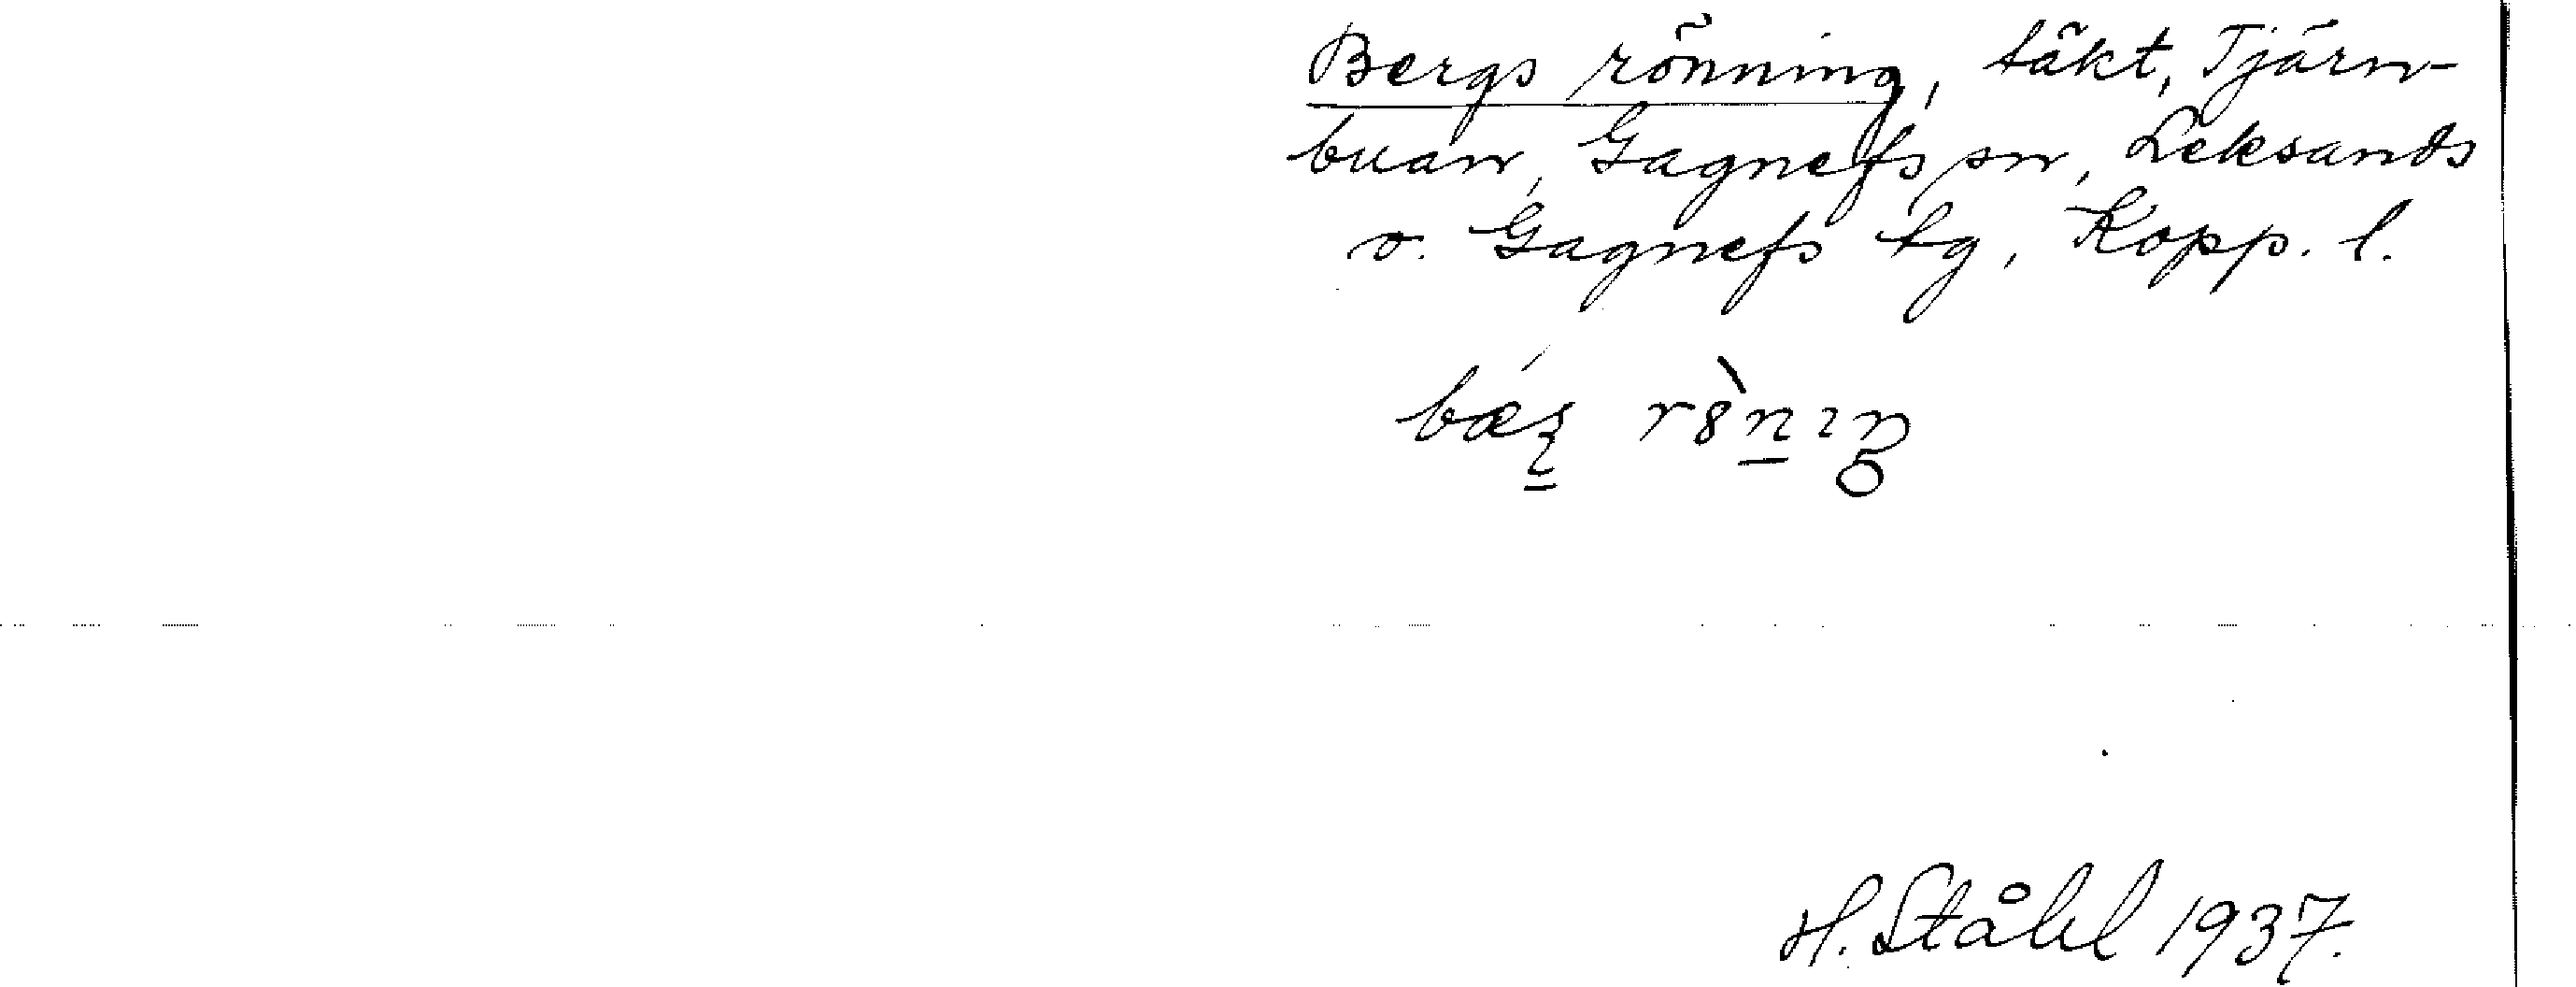 Bergs rönning, täkt, Tjärn-
buan, Gagnefs sn, Leksands
o. Gagnefs tg, Kopp. l.
H. Ståhl 1937.